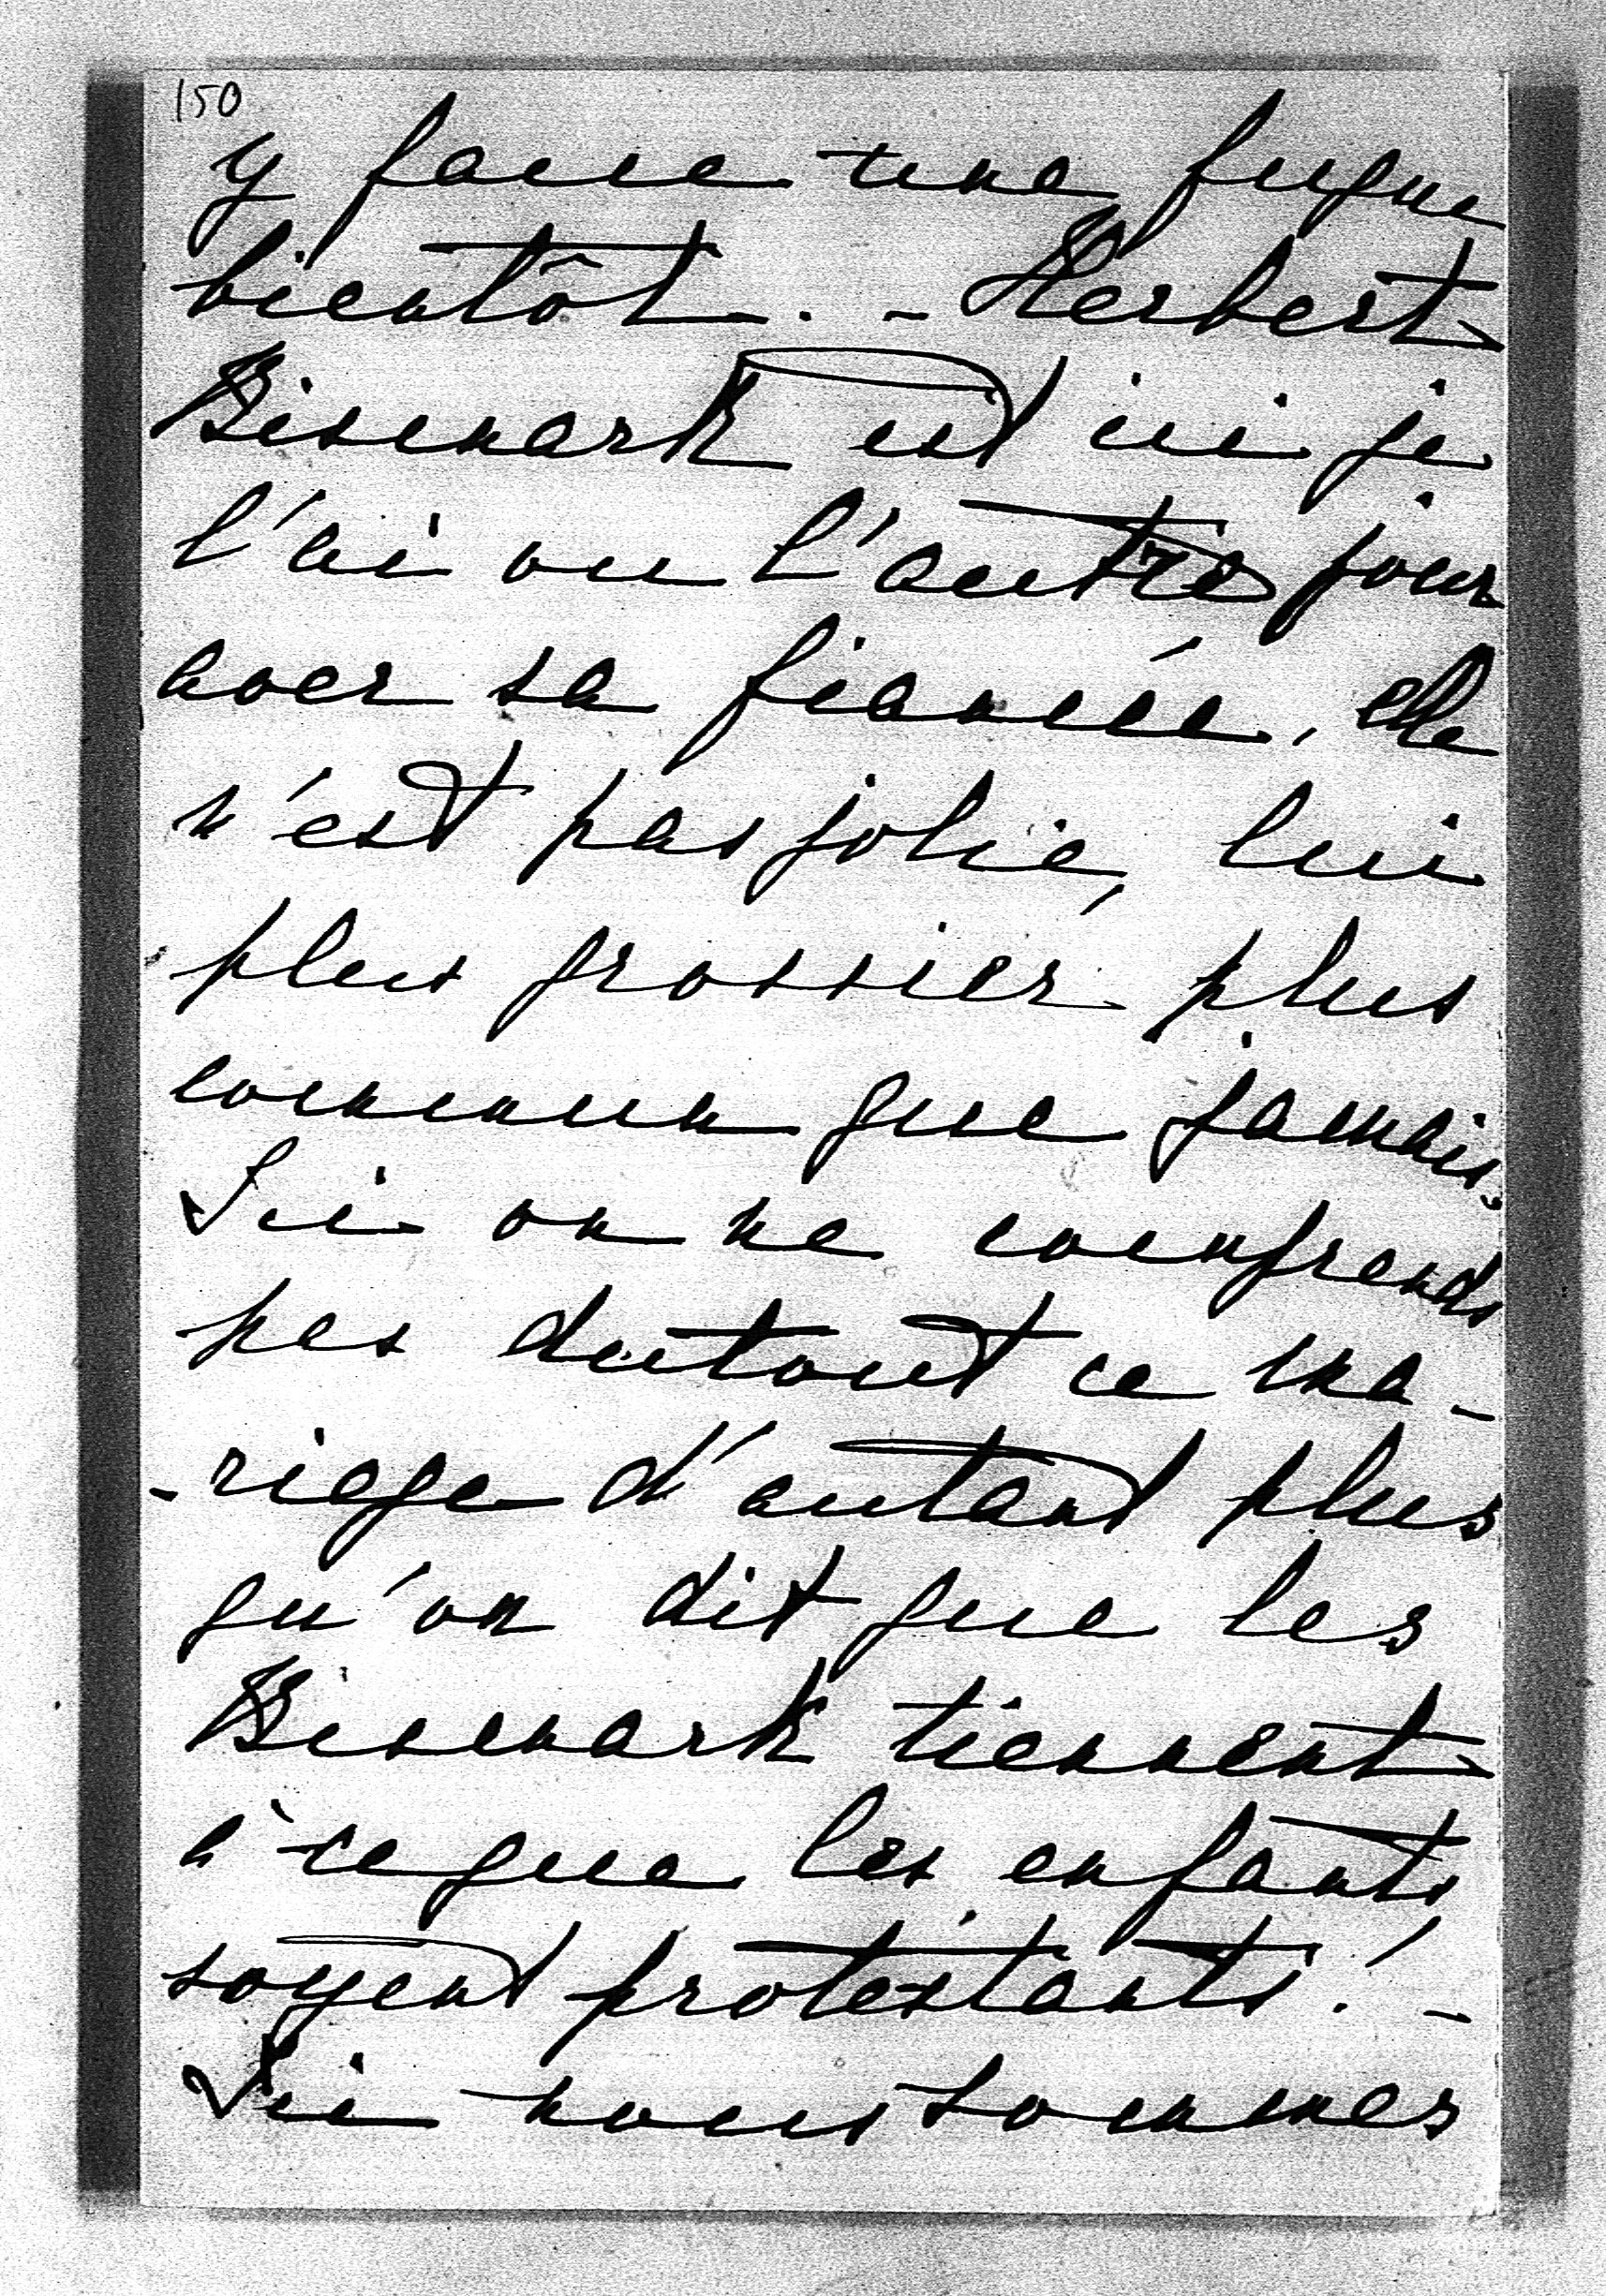 150
y fasse une fugue
bientôt. - Herbert
Bismark est ici je
l'ai vu l'autre jour
avec sa fiancée, elle
n'est pas jolie, lui
plus grossier plus
commun que jamais.
Ici on ne comprends
pas dutout ce ma-
-riage d'autant plus
qu'on dit que les
Bismark tiennent
à ce que les enfants
soyent protestants! -
Ici nous sommes